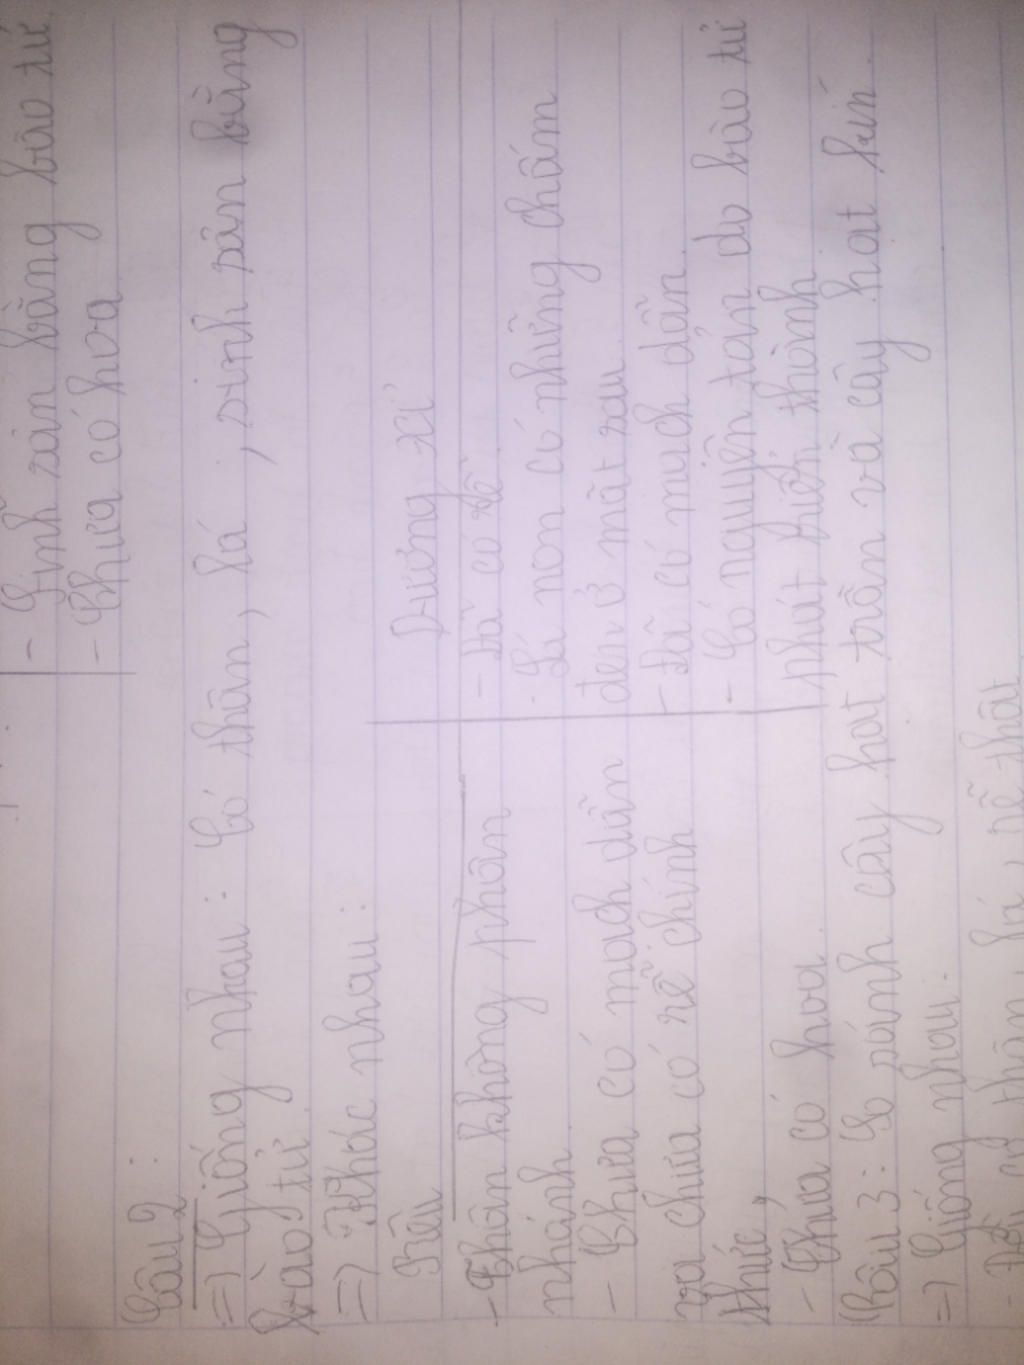 - Sinh sản bằng bào tử
- Chưa có hoa
Câu 2 :
=> Giống nhau : Có thân, lá , sinh sản bằng
bào tử
=> Khác nhau :
Rêu
- Thân không phân
nhánh
- Chưa có mạch dẫn
và chưa có rễ chính
thức,
- Chưa có hoa
Dương xỉ
- Đã có rễ
- Lá non có những chấm
đen ở mặt sau
- Đã có mạch dẫn
- Có nguyên tản do bào tử
phát triển thành
Câu 3 : So sánh cây hạt trần và cây hạt kín.
=> Giống nhau :
- Đều có thân, lá, rễ thật